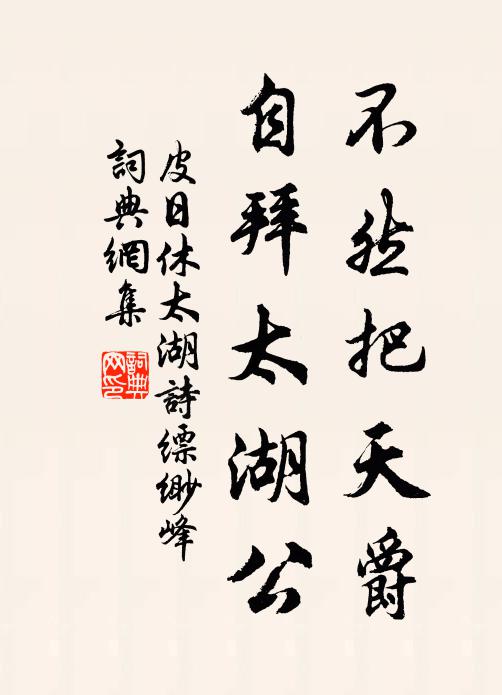 不然把天爵
自拜太湖公
皮日休太湖詩縹緲峰
詞典網集
詞典
网印